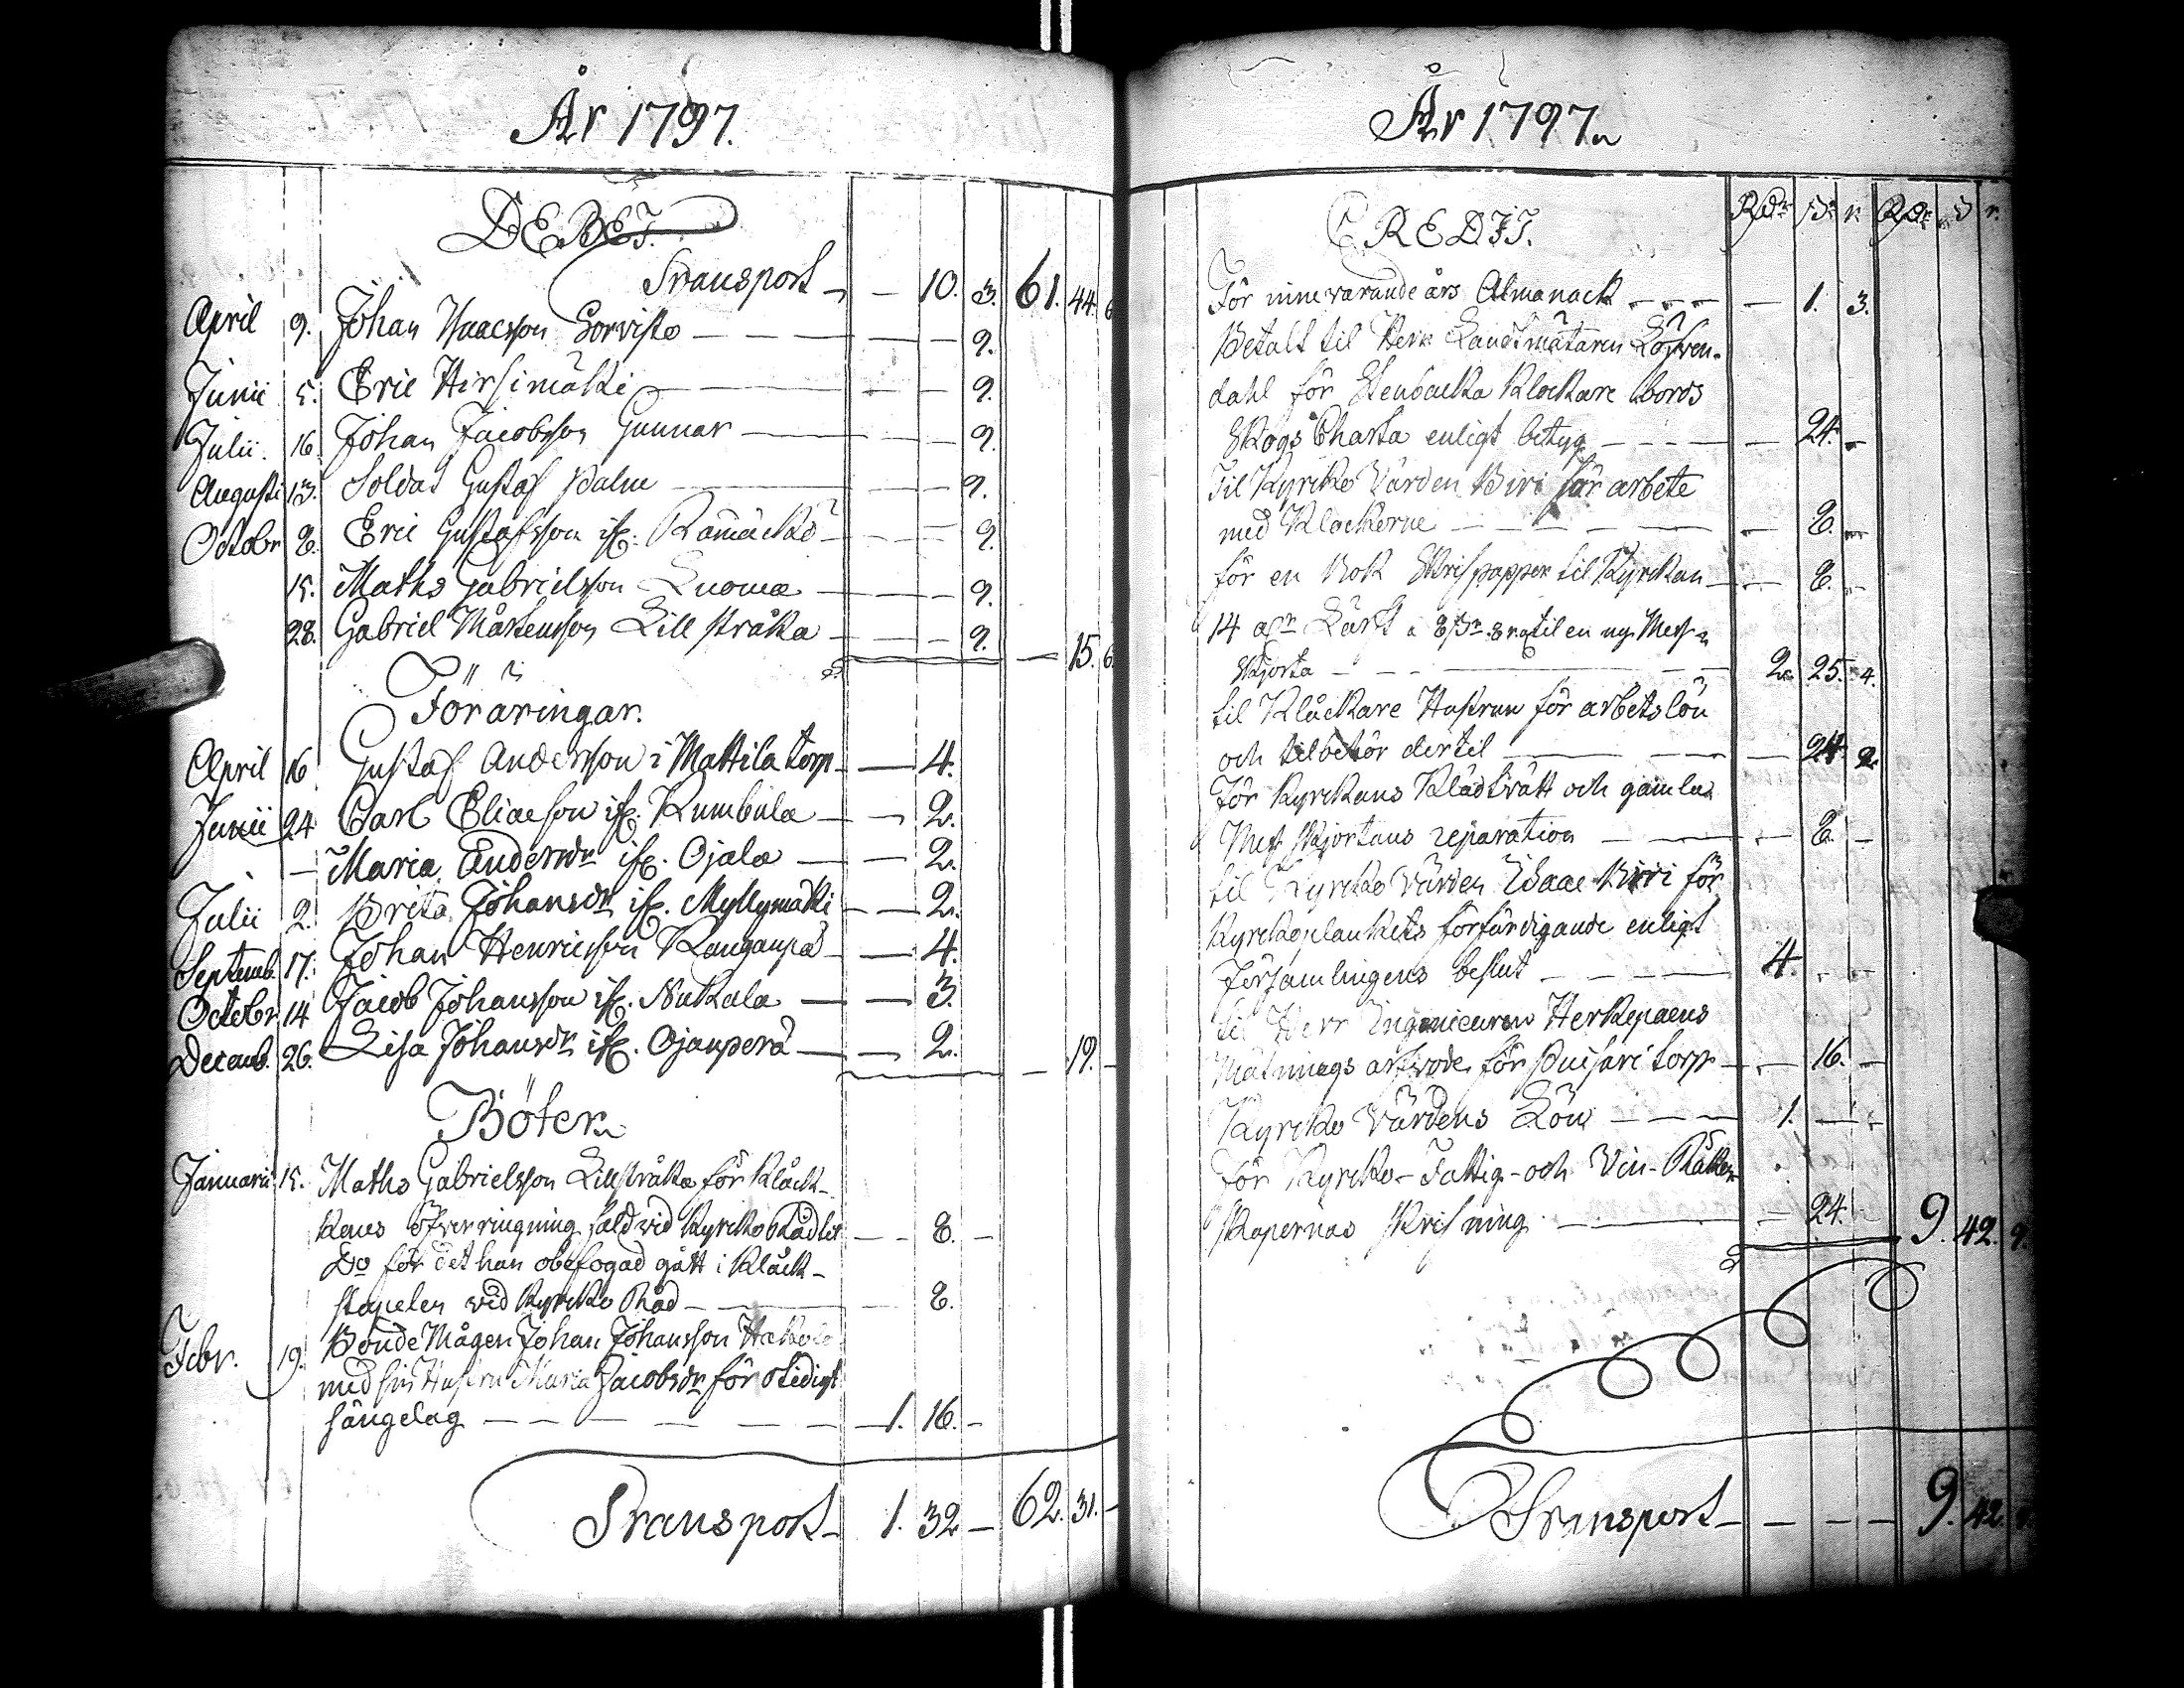 År 1797.
DEBET.
Transport - - 10. 3. 61. 44. 6
April 9. Johan Isaacsson Sorvisto - - - 9.
Junii 5. Eric Hirsimäki - - - 9.
Julii. 16. Johan Jacobsson Gunnar - - - 9.
Augusti 13. Soldat Gustaf Palm - - - 9.
Octobr 8. Eric Gustafsson ifr. Ramäckö - - - 9.
15. Maths Gabrielsson Luoma - - - 9.
28. Gabriel Mårtensson Lillstråka - - - 9. - 15. 6.
Föräringar.
April 16 Gustaf Andersson i Mattila torp - - 4.
Junii 24 Carl Eliaeson ifr. Kumbula - - 2.
- Maria Andersdr ifr. Ojala - - 2.
Julii 2. Brita Johansdr ifr. Myllymäki - - 2.
Septemb. 17. Johan Henricsson Kanganpä - - 4.
Octobr 14 Jacob Johansson ifr. Nukala - - 3.
Decemb. 26. Lisa Johansdr ifr. Ojanperä - - 2. - 19. -
Böter.
Januarii 15. Maths Gabrielsson Lillstråka för Klåck-
kans öfverringning fäld vid Kyrcko Rådet - - 8. -
Do för det han obefogad gått i Klåck-
stapelen vid Kyrcko Råd - - 8.
Febr. 19. Bonde Mågen Johan Johansson
med sin Hustru Maria Jacobsdr för otidigt
sängelag - - - 1. 16. -
Transport - 1. 32 - 62. 31. -
År 1797.
CREDIT.
Rdr sk r Rdr s r.
För innevarande års Almanack - - - 1. 3.
Betalt til Herr Landtmätaren Löfven-
dahl för Stenbacka Klockare bords
Skogs Charta enligt betyg - - - 24. -
Til Kyrcko Värden Biri för arbete
med Klockorne - - - 8. -
för en bok Skrifpapper til Kyrckan - - 8. -
14 aln Lärft a 8 sk. 8 r til en ny Mess-
skjorta - - - 2. 25. 4.
til Klåckare Hustrun för arbetslön
och tilbehör dertil - - - 24. 2.
För Kyrckans Klädtvätt och gamla
Mess skjortans reparation - - - 8. -
til Kyrcko Värden Isaac Biri för
Kyrckoplankets förfärdigande enligt
Församlingens beslut - - - 4. - -
til Herr Ingenieuren Herkepaeus
Mätnings arfvode för torp - - 16. -
Kyrcko Värdens Lön - - - 1. - -
För Kyrcko- Fattig- och Vin- Räken-
skapernas skrifning - - - 24. - 9. 42. 9.
Transport - - - - 9. 42. 9.